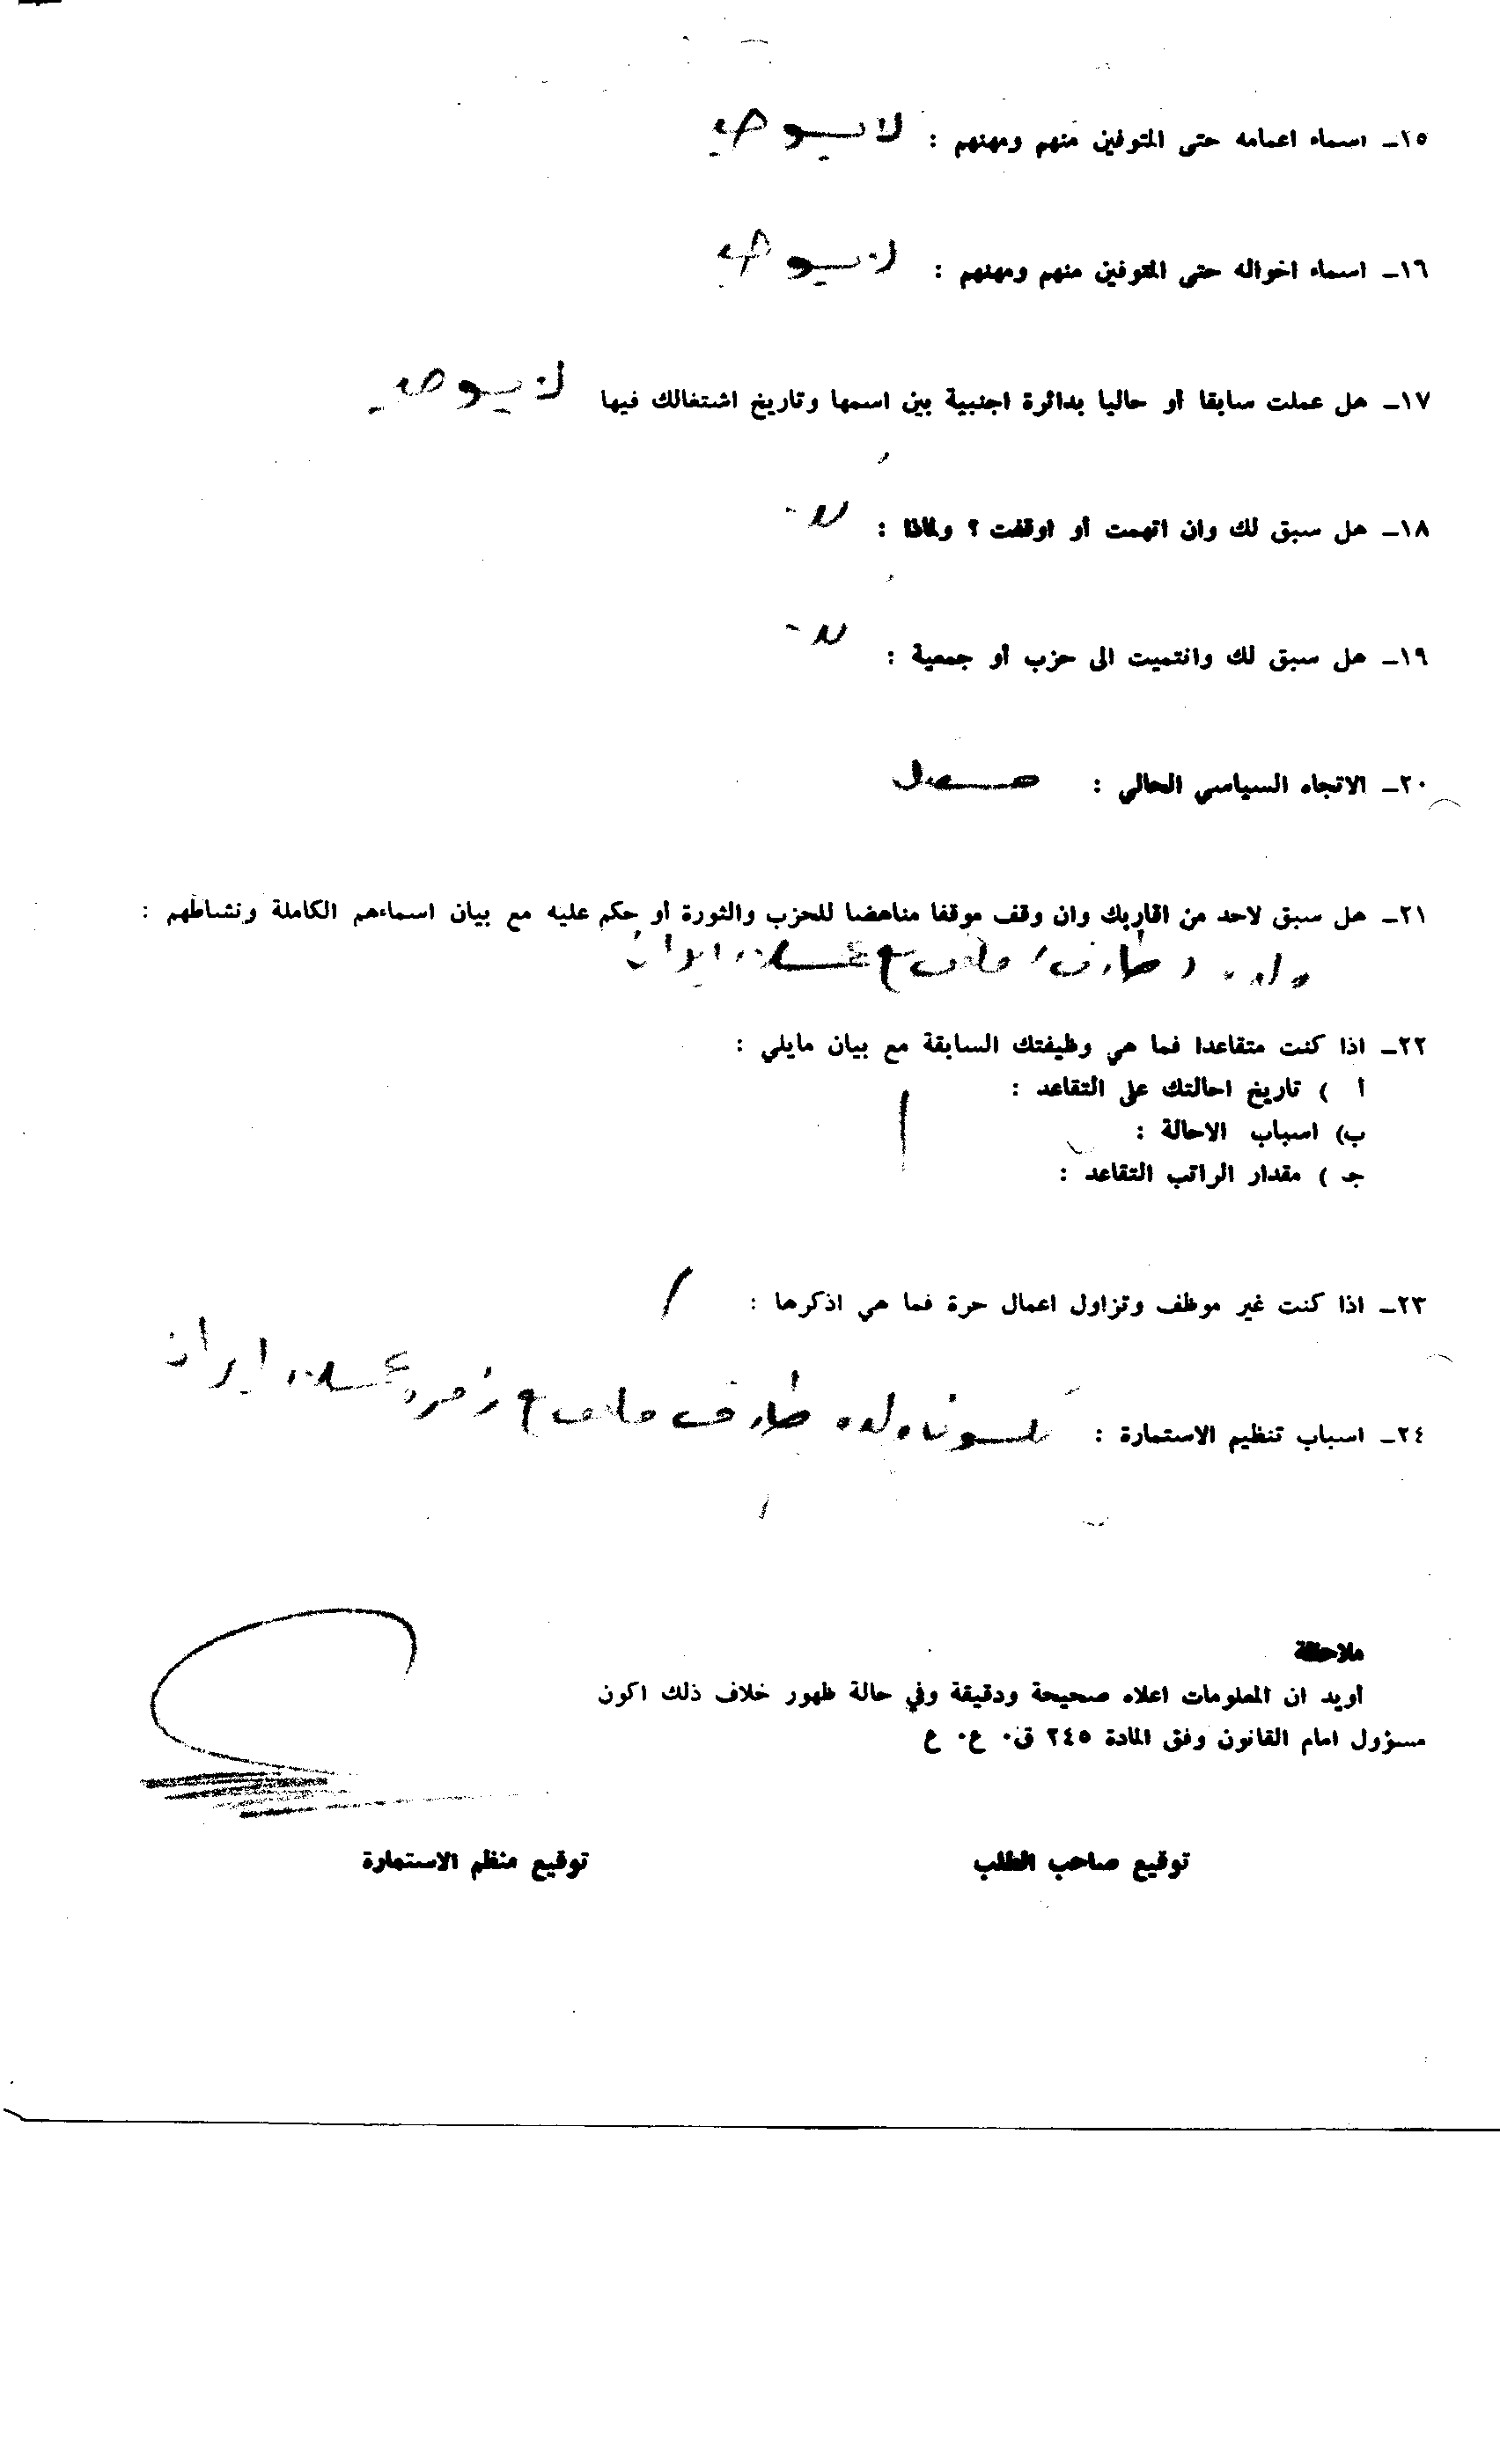 ١٥ــ اسماء اعمامه حتى المتوفين منهم ومهنهم : لا يوجد
١٦ــ اسماء اخواله حتى المتوفين منهم ومهنهم : لا يوجد
١٧ــ هل عملت سابقا أو حاليا بدائرة اجنبية بين اسمها وتاريخ اشتغالك فيها لا يوجد
١٨ــ هل سبق لك وان اتهمت أو اوقفت ؟ ولماذا : لا
١٩ــ هل سبق لك وانتميت الى حزب أو جمعية : لا
٢٠ــ الاتجاه السياسي الحالي : مستقل
٢١ــ هل سبق لاحد من اقاربك وان وقف موقفا مناهضا للحزب والثورة أو حكم عليه مع بيان اسماءهم الكاملة ونشاطهم :
ولده طارق ايران
٢٢ــ اذا كنت متقاعدا فما هي وظيفتك السابقة مع بيان مايلي :
أ ) تاريخ احالتك على التقاعد :
ب) اسباب الاحالة :
جـ ) مقدار الراتب التقاعد :
٢٣ــ اذا كنت غير موظف وتزاول اعمال حرة فما هي اذكرها :
٢٤ــ اسباب تنظيم الاستمارة : ولده طارق زمرة عملاء ايران
ملاحظة
أويد ان المعلومات اعلاه صحيحة ودقيقة وفي حالة ظهور خلاف ذلك اكون
مسؤول امام القانون وفق المادة ٢٤٥ ق٠ ع٠ ع
توقيع صاحب الطلب توقيع منظم الاستمارة